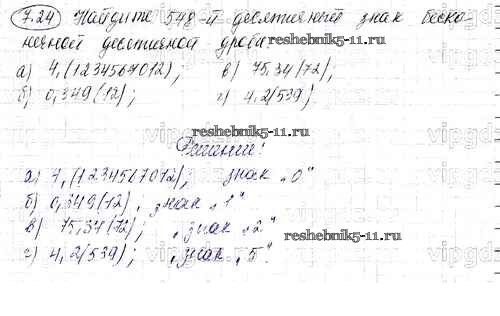 7.24 Найдите 548-й десятичный знак беско-
нечной десятичной дроби
а) 4,(1234567012); в) 75,34(72);
б) 0,349(12); г) 4,2(539)
reshebnik5-11.ru
Решение:
а) 7,(1234567012), знак „0"
б) 0,349(12), знак „1"
в) 75,34(72); , знак „2"
reshebnik5-11.ru
г) 4,2(539); , знак „5".